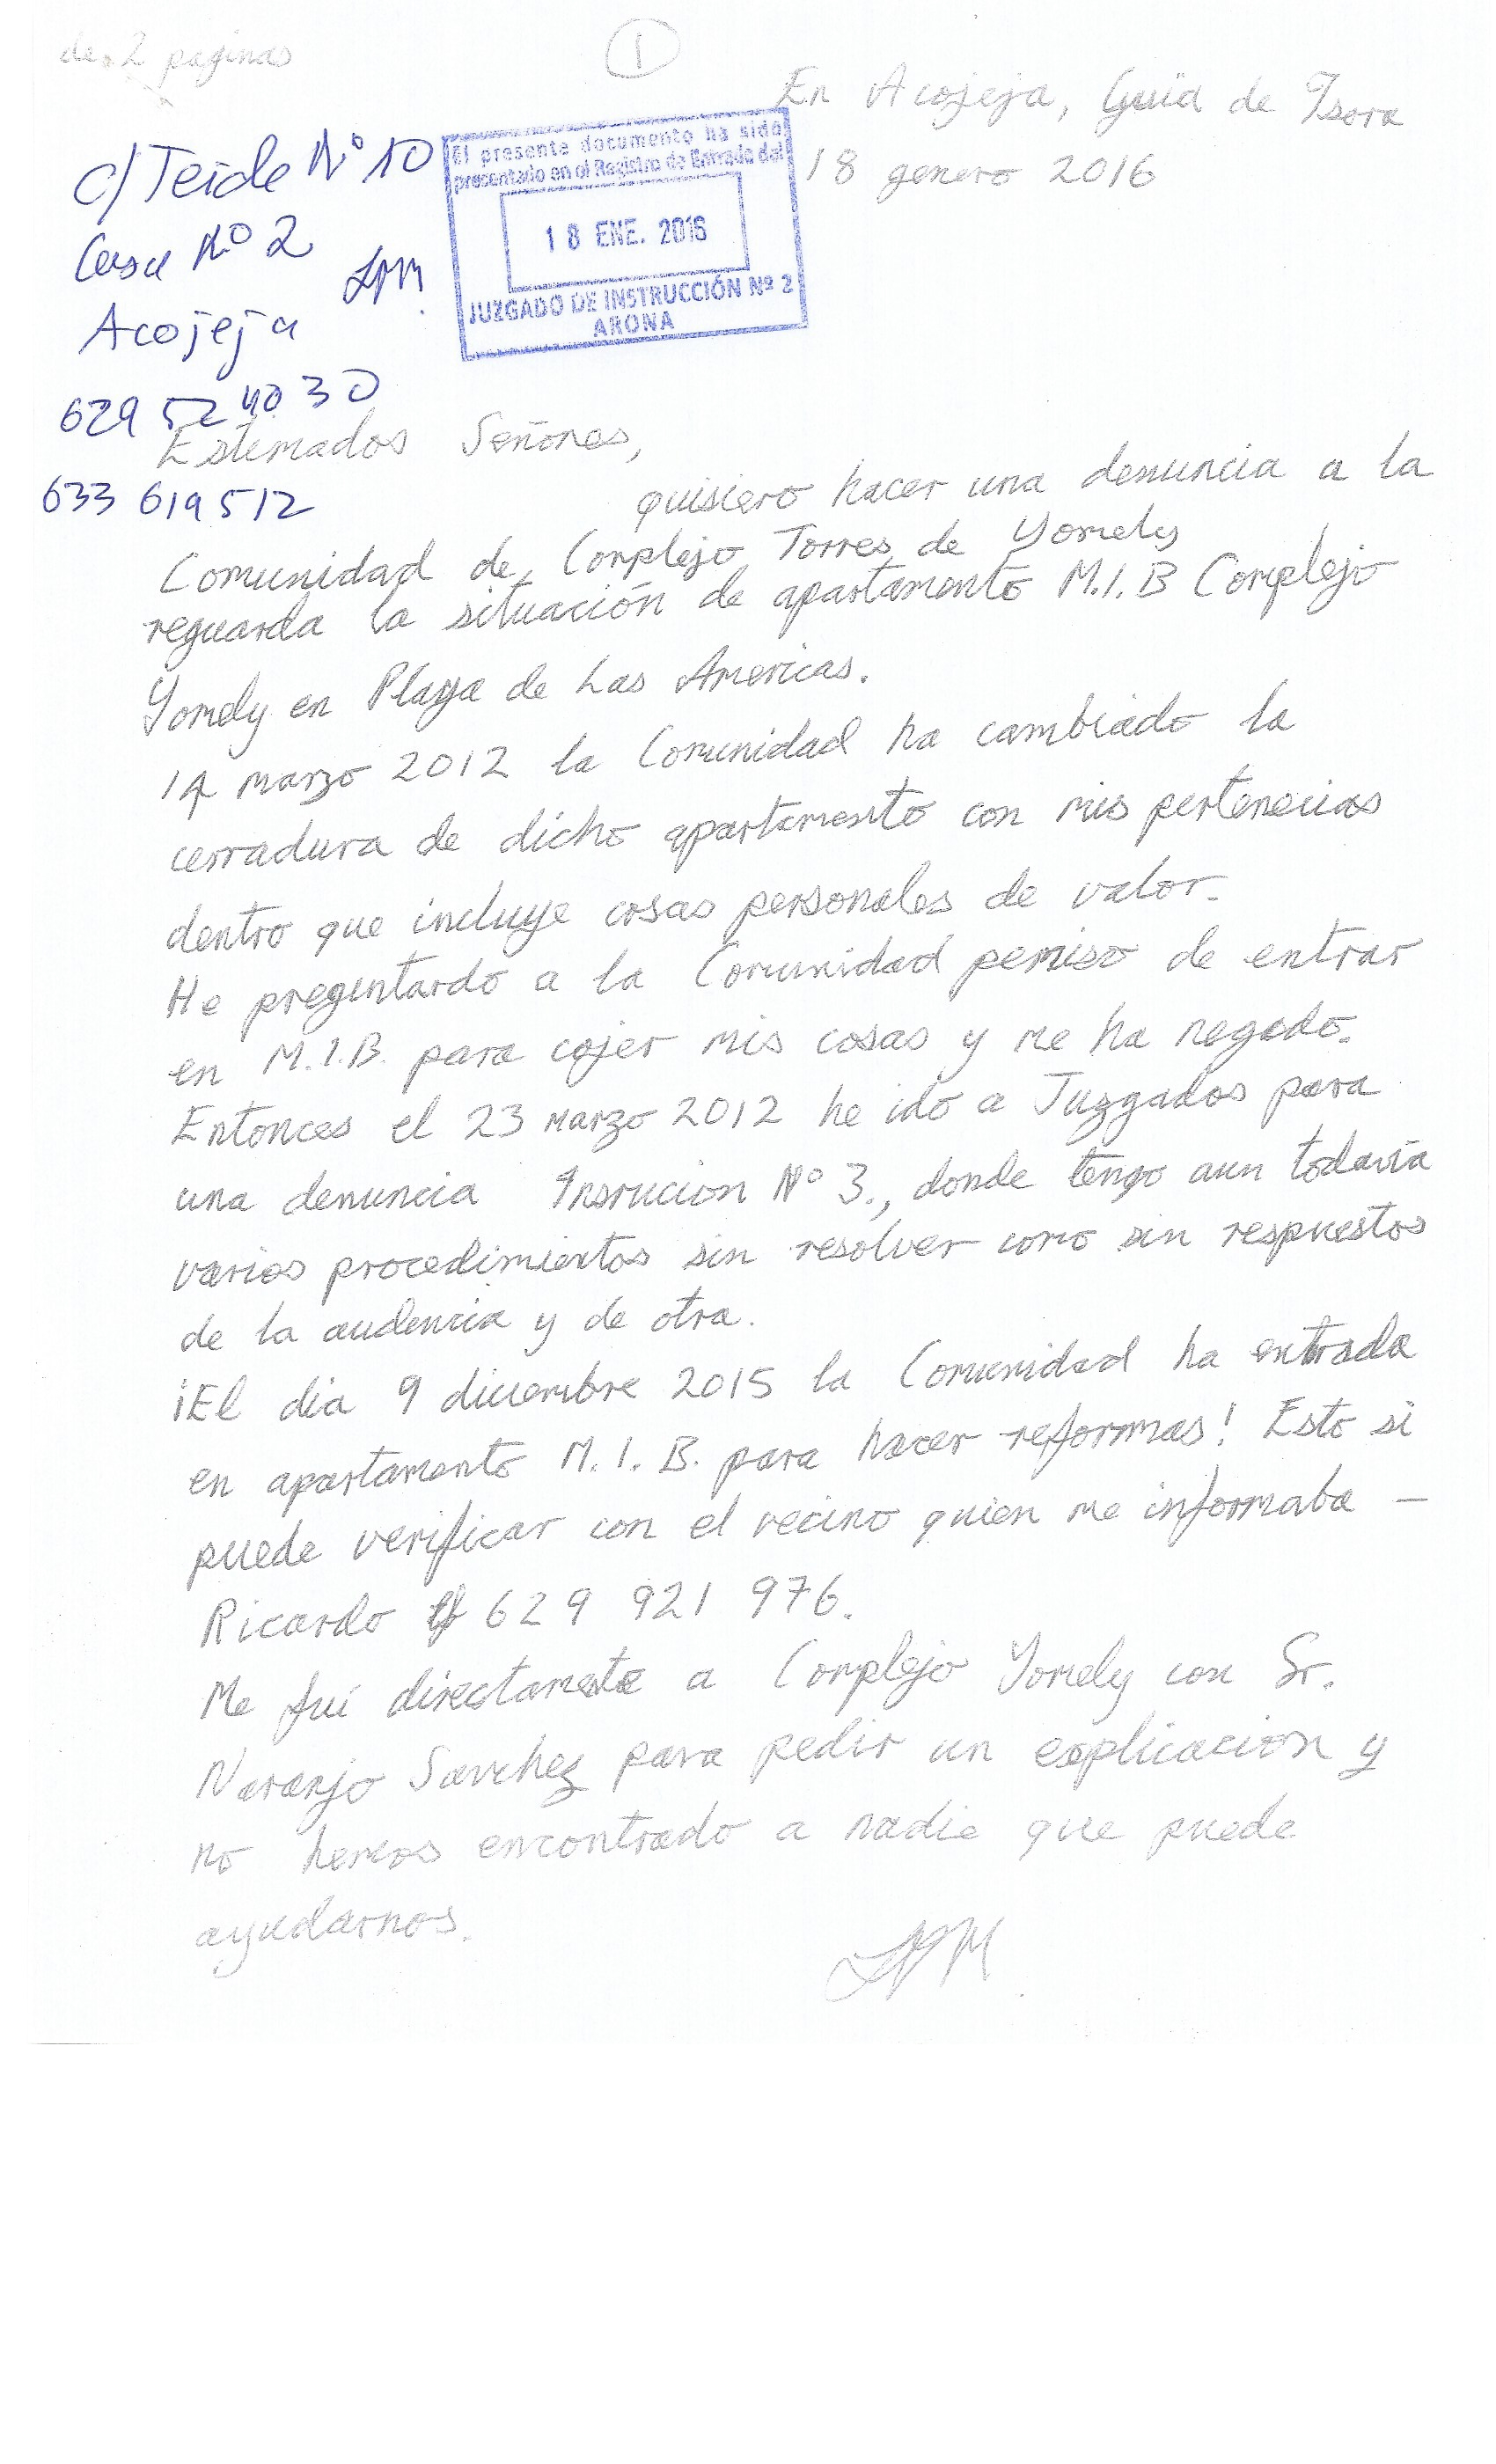 de 2 paginas
1
En Acojeja, Guia de Isora
18 genero 2016
c/ Teide Nº 10
Casa Nº 2
Acojeja
629 52 40 30
633 619512
El presente documento ha sido
presentado en el Registro de Entrada del
18 ENE. 2016
JUZGADO DE INSTRUCCIÓN Nº 2
ARONA
Estemados Señores,
quisiero hacer una denuncia a la
Comunidad de Complejo Torres de Yomely
reguarda la situación de apartamento M.I.B Complejo
Yomely en Playa de Las Americas.
14 marzo 2012 la Comunidad ha cambiado la
cerradura de dicho apartamento con mis pertenecias
dentro que incluye cosas personales de valor.
He preguntardo a la Comunidad permiso de entrar
en M.I.B. para cojer mis cosas y me ha negado.
Entonces el 23 marzo 2012 he ido a Juzgados para
una denuncia Insrucion Nº 3., donde tengo aun todavia
varios procedimientos sin resolver como sin respuestos
de la audencia y de otra.
¡El dia 9 diciembre 2015 la Comunidad ha entrada
en apartamento M.I.B. para hacer reformas! Esto si
puede verificar con el vecino quien me informaba –
Ricardo tf 629 921 976.
Me fui directamente a Complejo Yomely con Sr.
Naranjo Sanchez para pedir un esplicacion y
no hemos encontrado a nadie que puede
ayudarnos.